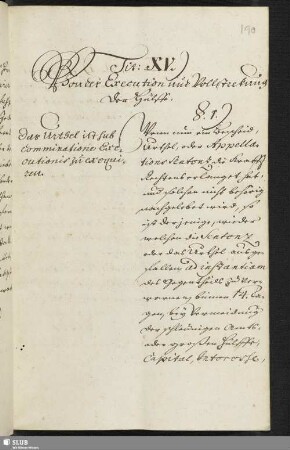 190
Tit: XV.
Von der Execution und Vollstreckung
der Hülffe.
§. 1.
Das Urtdel ist sub
comminatione Exe-
cutionis zu exequi-
ren.
Wenn nun ein Bescheid,
Urthel, oder Appella-
tions Sentenz die Krafft
Rechtens erlanget hat,
und solchen nicht behörig
nachgelebet wird, so
ist derjenige, wieder
welchen die Sentenz
oder das Urthel ausge-
fallen, ad instantiam
des Gegentheils zu ver-
warnen, binnen 14. Ta-
gen, bey Vermeidung
der schleunigen Amts-
oder
Capital, Interesse,
SLUB